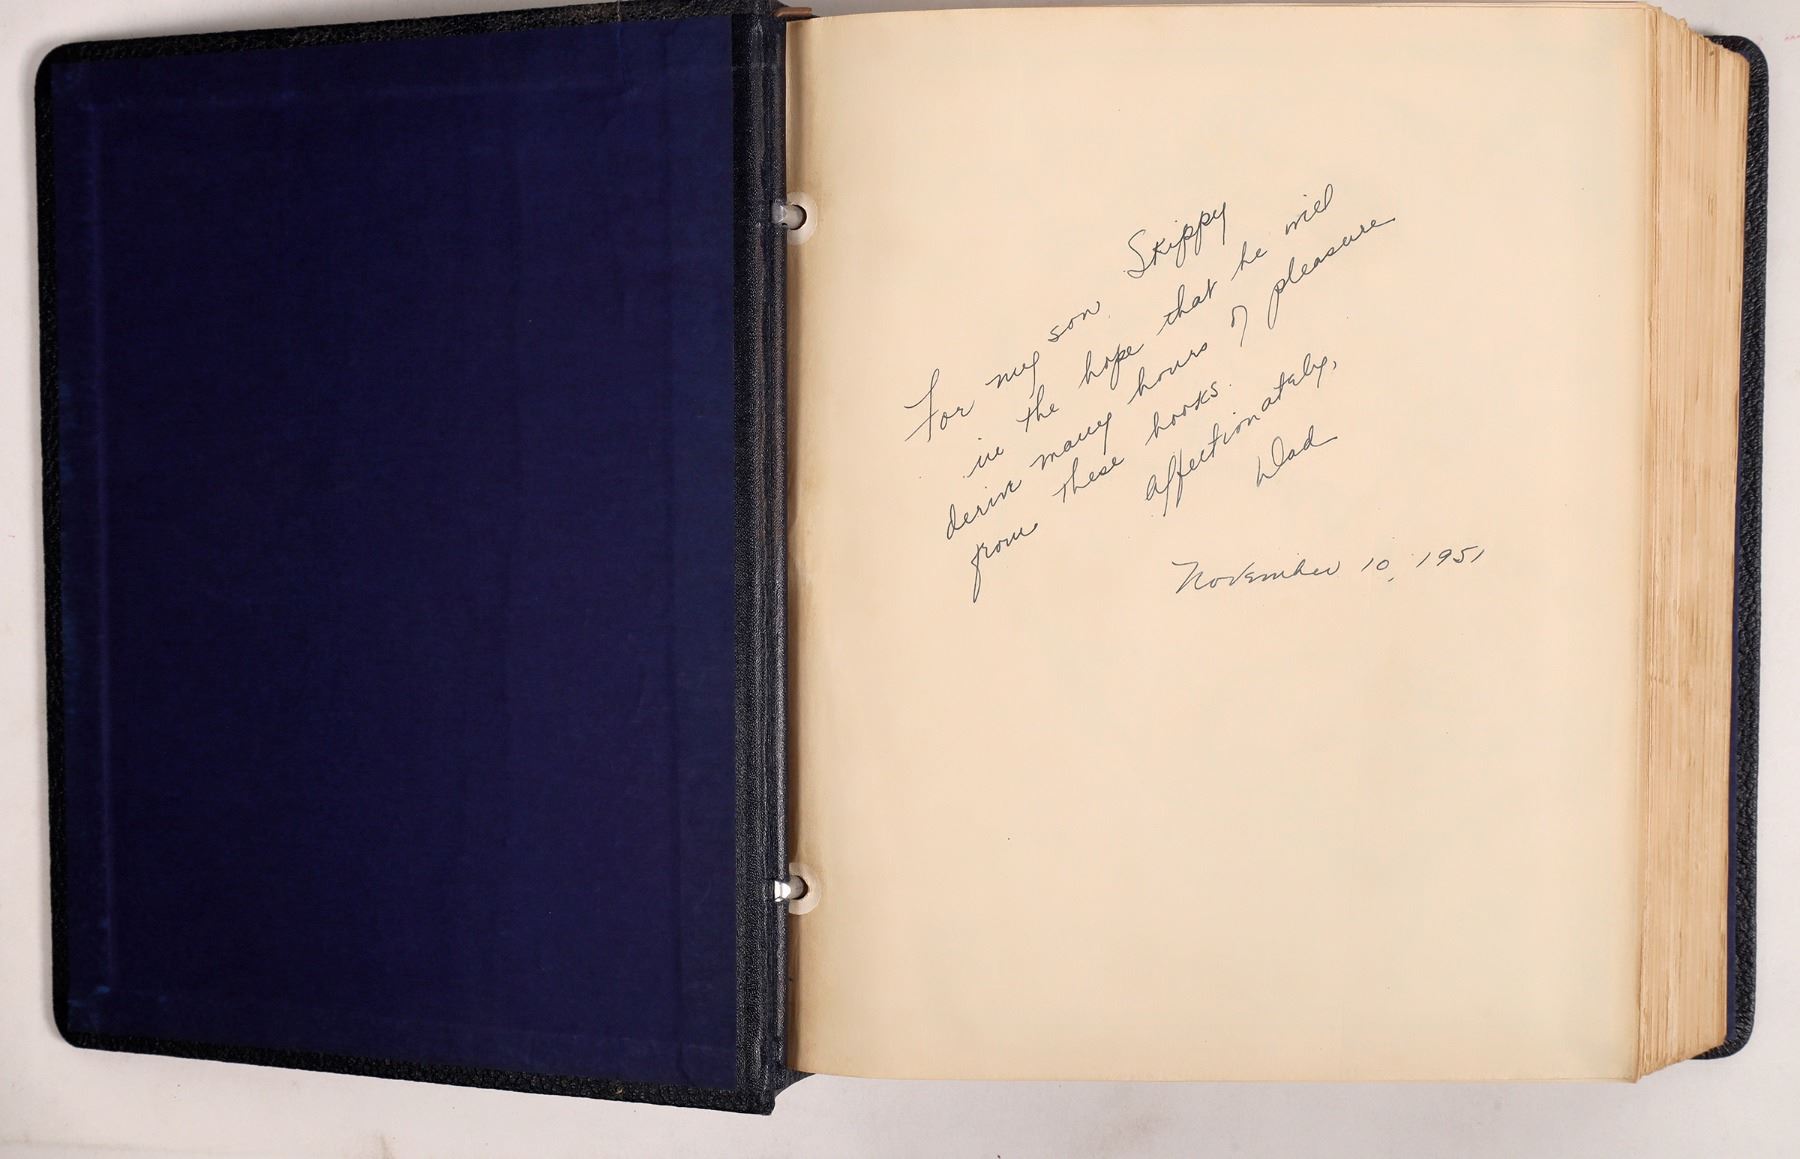 For my son Skippy
in the hope that he will
derive many hours of pleasure
from these books.
Affectionately,
Dad
November 10, 1951